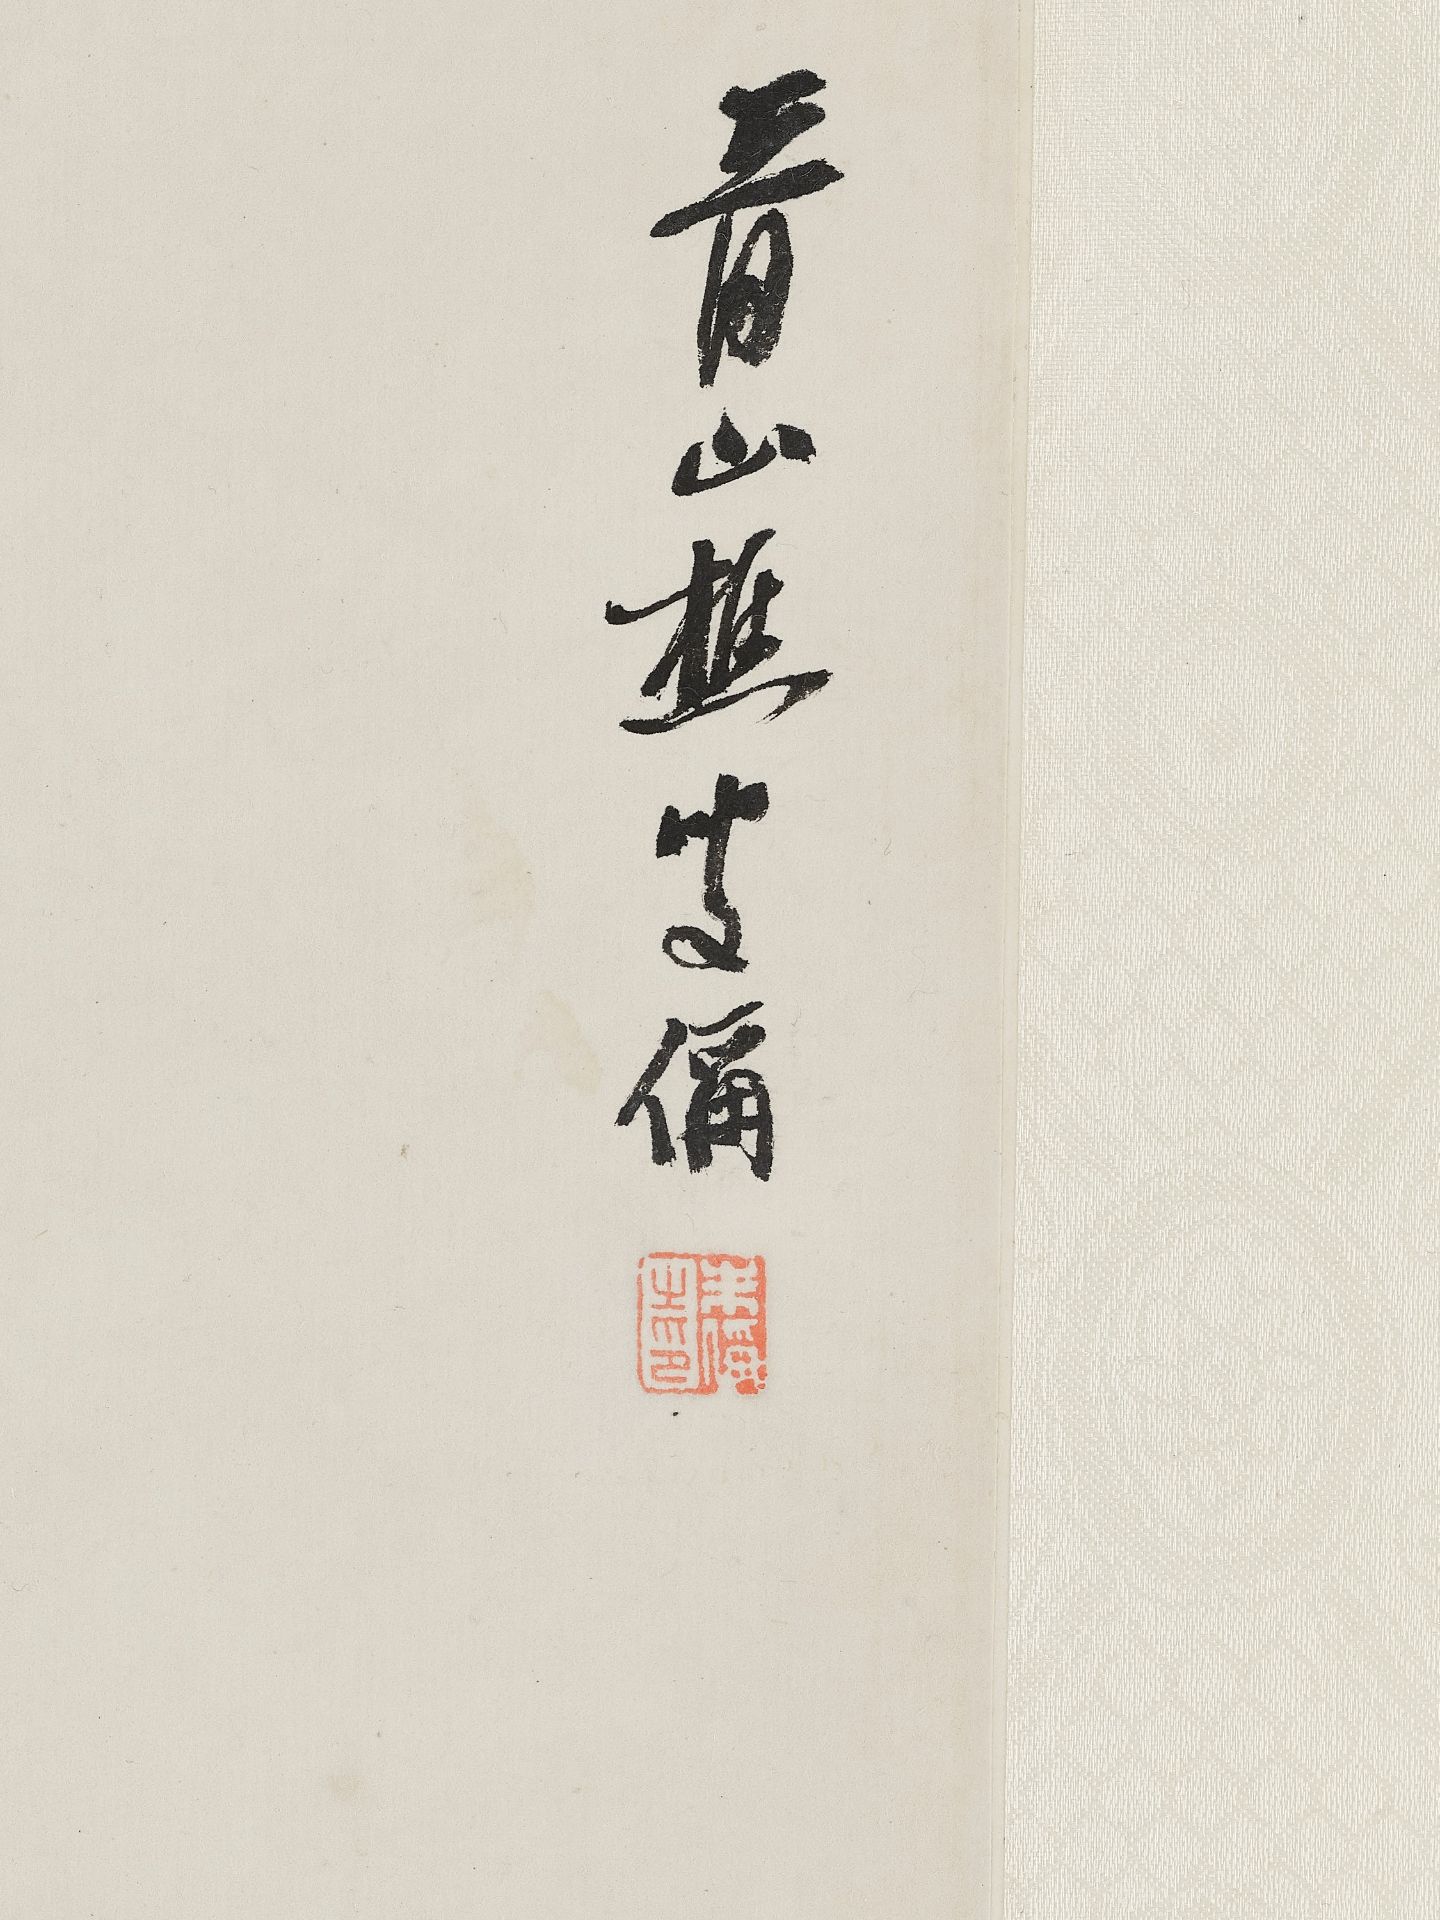 青山樵叟偁
朱偁之印